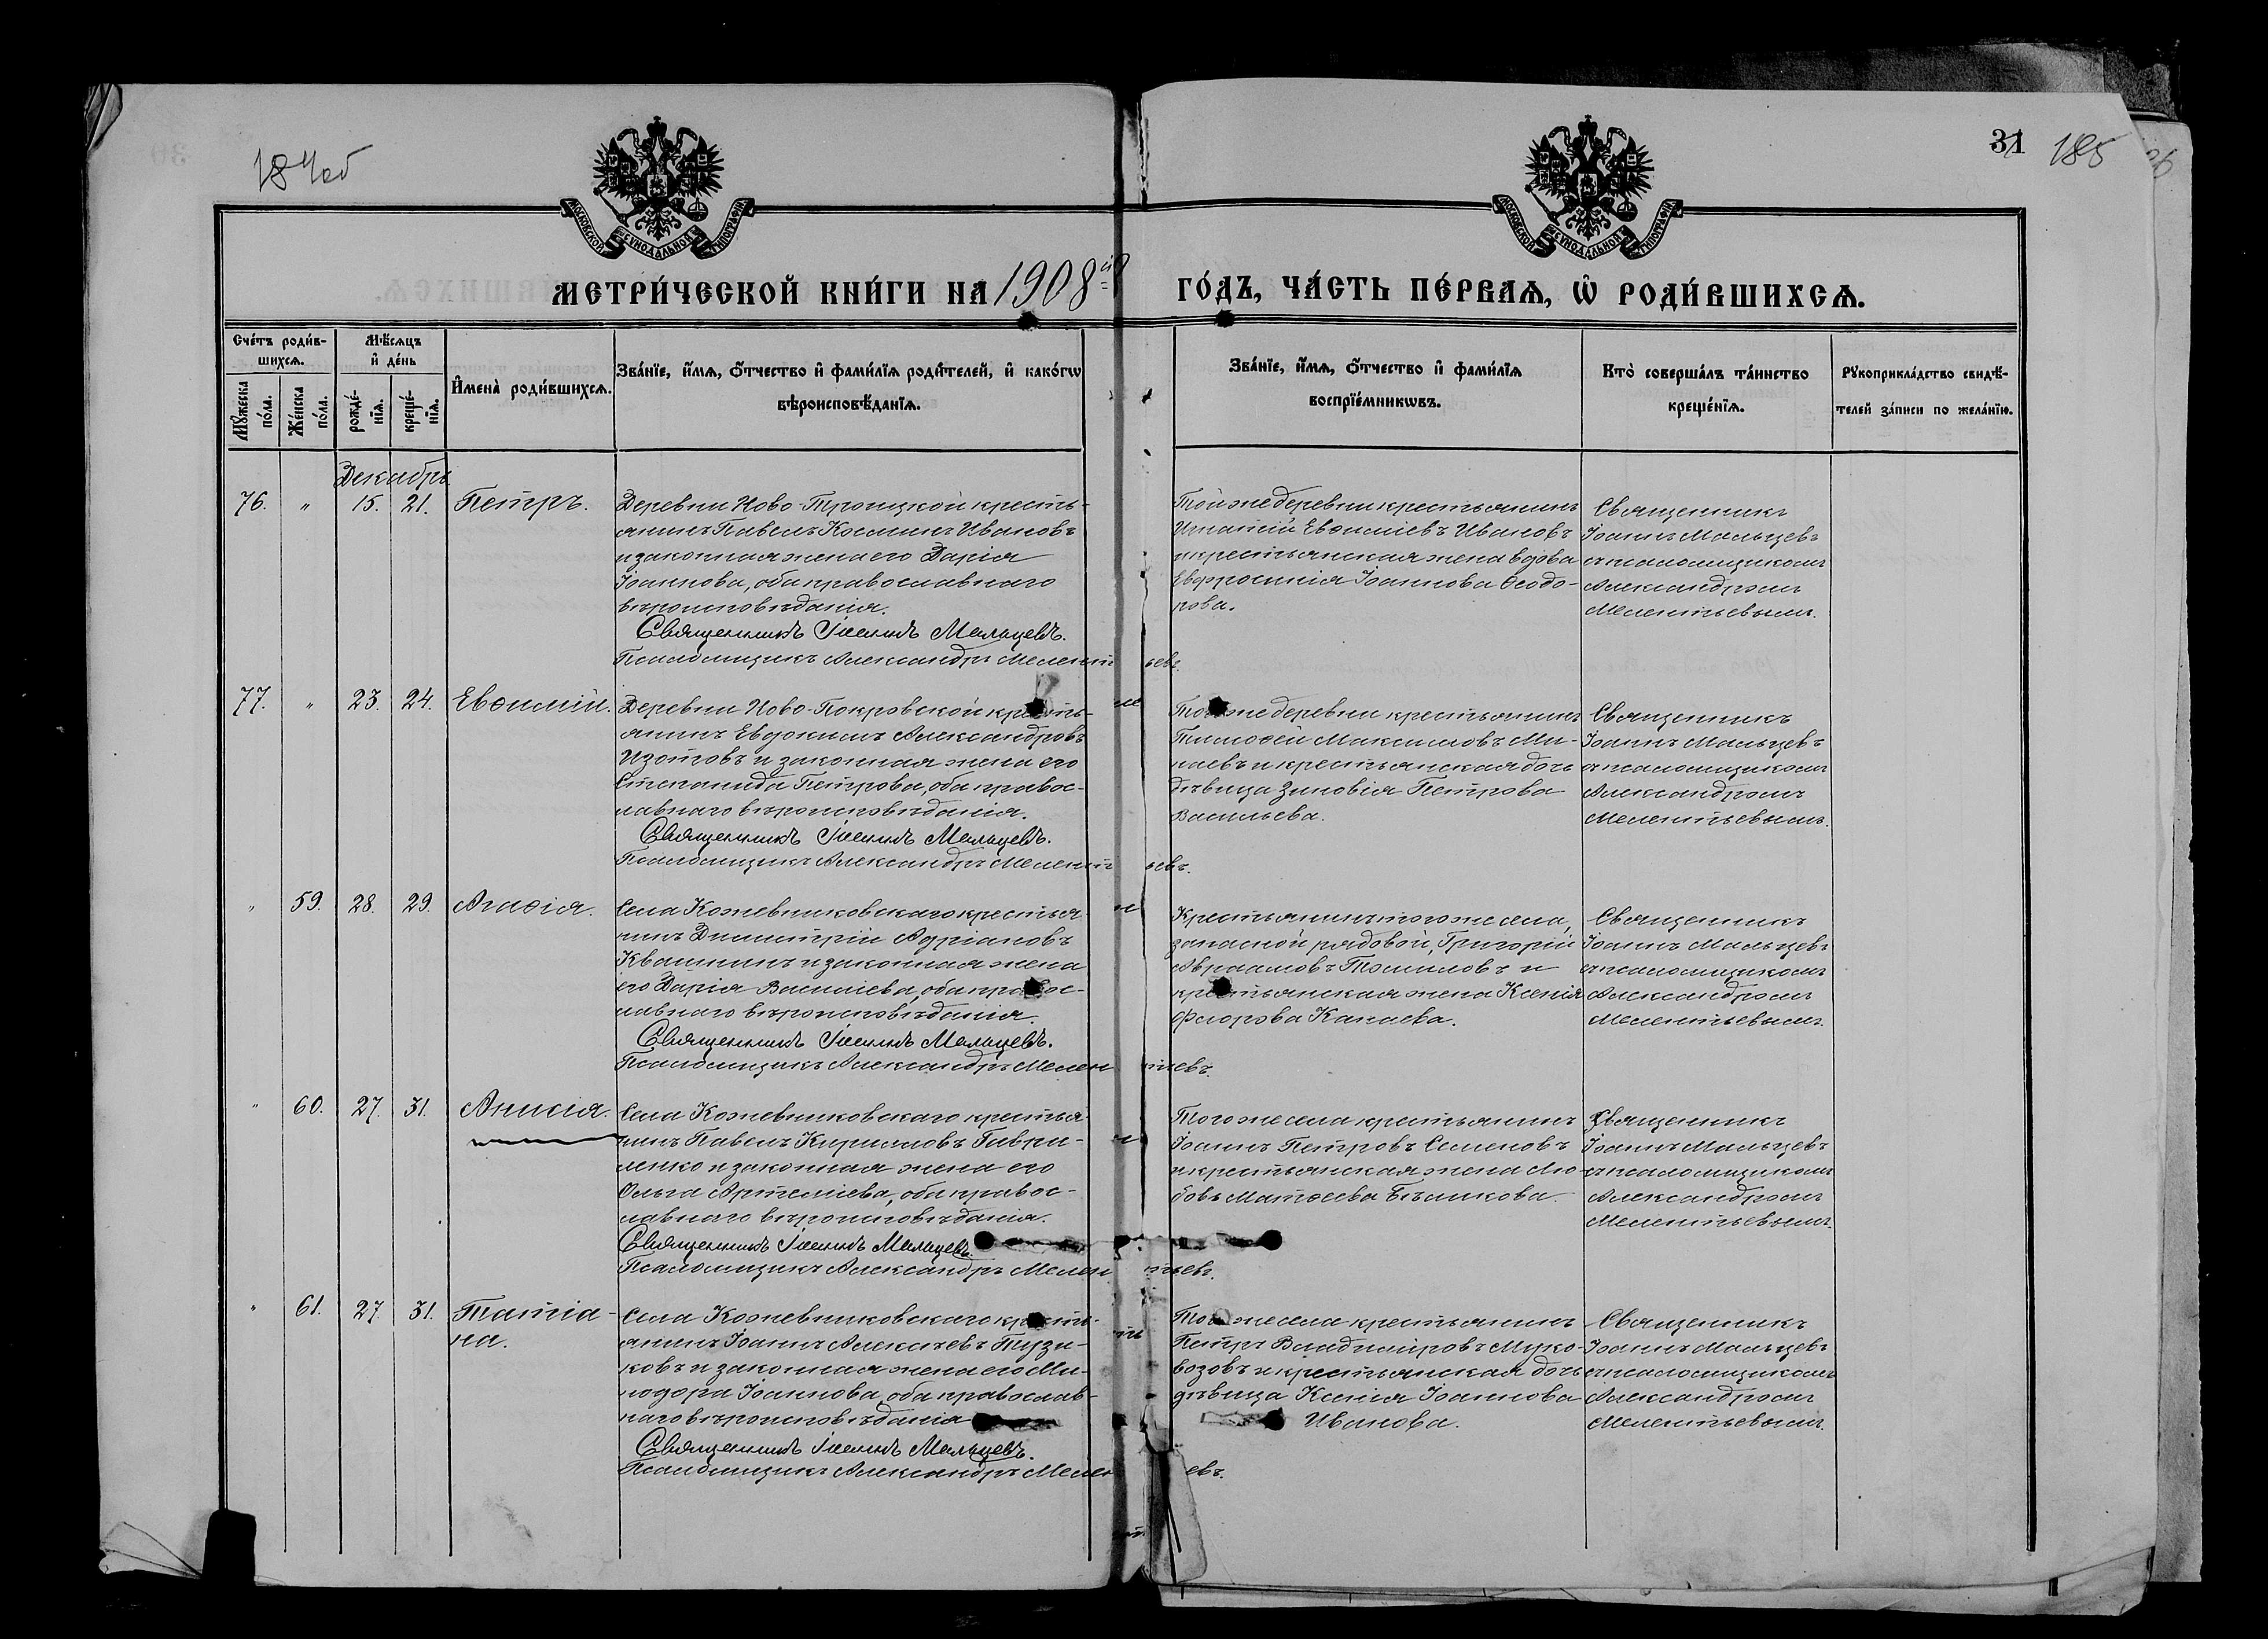 184об
31 185
МОСКОВСКОЙ СѴНОДАЛЬНОЙ ТИПОГРАФІИ
МОСКОВСКОЙ СѴНОДАЛЬНОЙ ТИПОГРАФІИ
МЕТРИ́ЧЕСКОЙ КНИ́ГИ НА 1908й
ГО́ДЪ, ЧА́СТЬ ПЕ́РВАѦ, Ѽ РОДИ́ВШИХСѦ.
Сче́тъ роди́в-
шихсѧ.
Мꙋ́жеска по́ла.
Же́нска по́ла.
Мѣ́сѧцъ
и҆ де́нь
рожде́-
нїѧ.
креще́-
нїѧ.
И҆мена̀ роди́вшихсѧ.
Зва́нїе, и҆́мѧ, ѻ҆́тчество и҆ фами́лїѧ роди́телей, и҆ како́гѡ
вѣроисповѣ́данїѧ.
Зва́нїе, и҆́мѧ, ѻ҆́тчество и҆ фами́лїѧ
воспрїе́мникѡвъ.
Кто̀ соверша́лъ та́инство
креще́нїѧ.
Рꙋкоприкла́дство свидѣ́-
телей за́писи по жела́нїю.
Декабрь
76. „ 15. 21. Петръ.
Деревни Ново-Троицкой кресть-
янинъ Павелъ Косминъ Ивановъ
и законная жена его Дарія
Іоаннова, оба православнаго
вѣроисповѣданія.
Священникъ Іоаннъ Мальцевъ.
Псаломщикъ Александръ Мелентьевъ.
Той же деревни крестьянинъ
Игнатій Евѳиміевъ Ивановъ
и крестьянская жена вдова
Евфросинія Іоаннова Ѳеодо-
рова.
Священникъ
Іоаннъ Мальцевъ
съ псаломщикомъ
Александромъ
Мелентьевымъ.
77. „ 23. 24. Евѳимій.
Деревни Ново-Покровской кресть-
янинъ Евдокимъ Александровъ
Изотовъ и законная жена его
Степанида Петрова, оба правос-
лавнаго вѣроисповѣданія.
Священникъ Іоаннъ Мальцевъ.
Псаломщикъ Александръ Мелентьевъ.
Той же деревни крестьянинъ
Тимоѳей Максимовъ Ми-
наевъ и крестьянская дочь
дѣвица Зиновія Петрова
Васильева.
Священникъ
Іоаннъ Мальцевъ
съ псаломщикомъ
Александромъ
Мелентьевымъ.
„ 59. 28. 29. Агаѳія.
Села Кожевниковскаго крестья-
нинъ Димитрій Адріановъ
Квашнинъ и законная жена
его Дарія Василіева, оба правос-
лавнаго вѣроисповѣданія.
Священникъ Іоаннъ Мальцевъ.
Псаломщикъ Александръ Мелентьевъ.
Крестьянинъ того же села,
запасной рядовой, Григорій
Авраамовъ Томиловъ и
крестьянская жена Ксенія
Флорова Капаева.
Священникъ
Іоаннъ Мальцевъ
съ псаломщикомъ
Александромъ
Мелентьевымъ.
„ 60. 27. 31. Анисія.
Села Кожевниковскаго крестья-
нинъ Павелъ Кирилловъ Гаври-
ленко и законная жена его
Ольга Артеміева, оба правос-
лавнаго вѣроисповѣданія.
Священникъ Іоаннъ Мальцевъ.
Псаломщикъ Александръ Мелентьевъ.
Того же села крестьянинъ
Іоаннъ Петровъ Семеновъ
и крестьянская жена Лю-
бовь Матѳеева Бѣликова.
Священникъ
Іоаннъ Мальцевъ
съ псаломщикомъ
Александромъ
Мелентьевымъ.
„ 61. 27. 31. Татіа-
на.
Села Кожевниковскаго кресть-
янинъ Іоаннъ Алексѣевъ Тузи-
ковъ и законная жена его Ми-
нодора Іоаннова, оба православ-
наго вѣроисповѣданія
Священникъ Іоаннъ Мальцевъ.
Псаломщикъ Александръ Мелентьевъ.
Того же села крестьянинъ
Петръ Владиміровъ Муко-
возовъ и крестьянская дочь
дѣвица Ксенія Іоаннова
Иванова.
Священникъ
Іоаннъ Мальцевъ
съ псаломщикомъ
Александромъ
Мелентьевымъ.